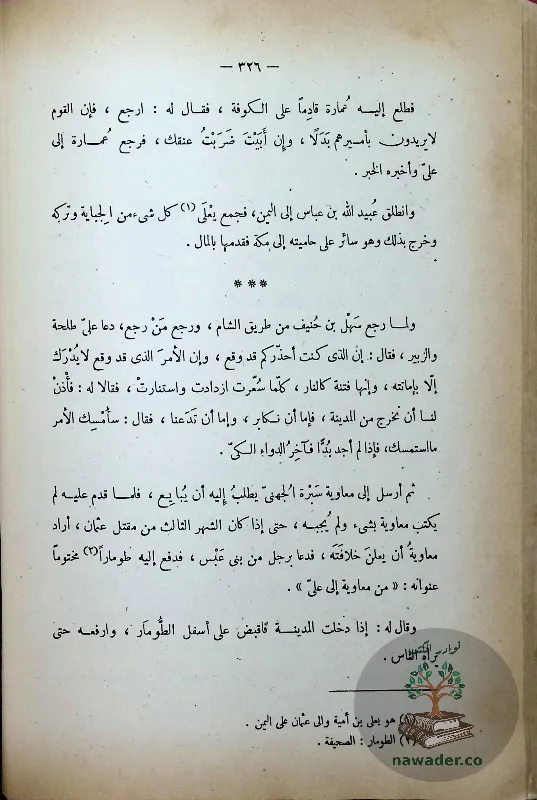 — ٣٢٦ —
فطلع إليــه عُمارة قادِماً على الكوفة ، فقــال له : ارجع ، فإن القوم
لايريدون بأميرهم بَدَلًا ، وإن أَبَيْتَ ضَرَبْتُ عنقك ، فرجع عُمــارة إلى
علىّ وأخبره الخبر .
وانطلق عُبيد الله بن عباس إلى اليمن، فجمع يَعْلَى (١) كل شىءمن الجِباية وتركه
وخرج بذلك وهو سائر على حاميته إلى مكة فقدمها بالمال .
* * *
ولمــا رجع سَهْل بن حُنيف من طريق الشام ، ورجع مَنْ رجع، دعا علىّ طلحة
والزبير ، فقال : إن الذى كنت أحذّركم قد وقع ، وإن الأمرَ الذى قد وقع لايُدْرَك
إلّا بإماتته ، وإنها فتنة كالنار ، كلّما سُعّرت ازدادت واستنارتْ ، فقالا له : فأْذنْ
لنــا أن نخرج من المدينة ، فإما أن نـكابر ، وإما أن تَدَعنا ، فقال : سأُمْسِك الأمر
مااستمسك، فإذا لم أجد بُدًّا فـآخِرُ الدواء الـكىّ .
ثم أرسل إلى معاوية سَبْرة الجهنىّ يطلبُ إليه أن يُبايــع ، فلمــا قدم عليــه لم
يكتب معاوية بشىء ولم يُجبــه ، حتى إذا كان الشهر الثالث من مقتل عثمان ، أراد
معاوية أن يعلنَ خلافَتَه ، فدعا برجل من بنى عَبْس ، فدفع إليه طوماراً (٢) مختوماً
عنوانه : « من معاوية إلى علىّ » .
وقال له : إذا دخلت المدينــة فاقبض على أسفل الطُّومار ، وارفعــه حتى
يراه الناس .
(١) هو يعلى بن أمية والى عثمان على اليمن .
(٢) الطومار : الصحيفة .
nawader.co